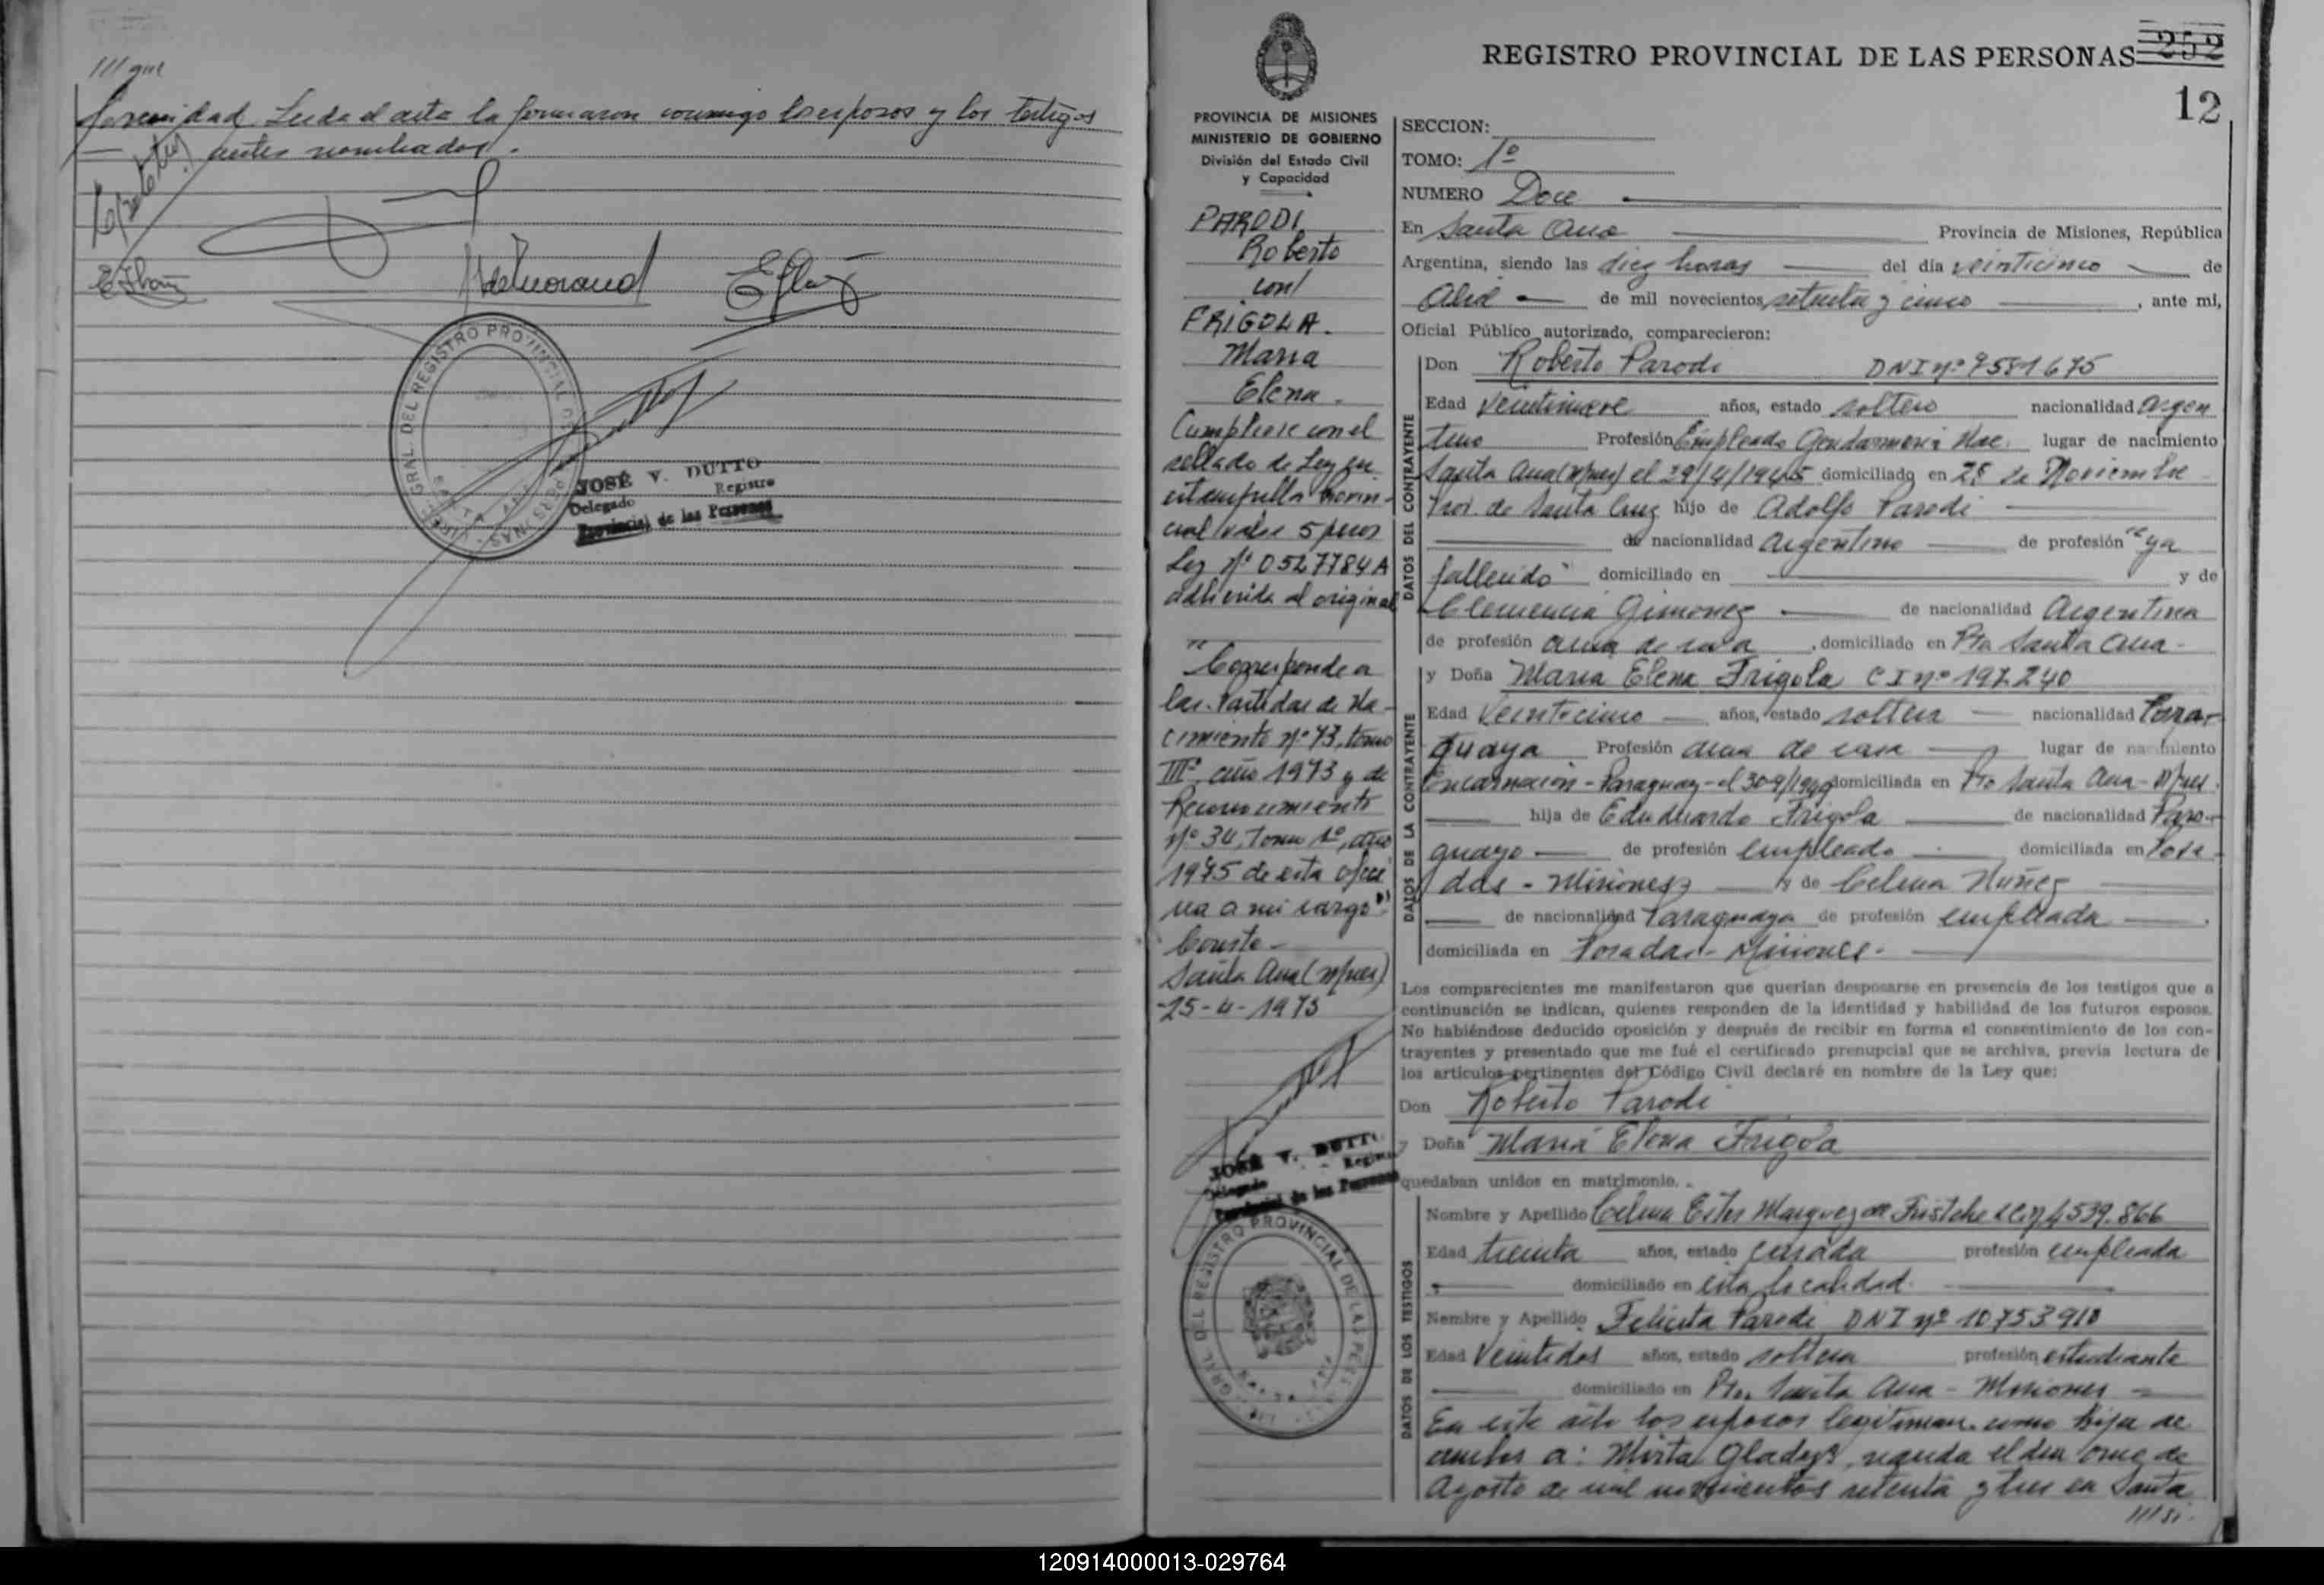 ///que
conformidad. Leida el acta la firmaron conmigo los esposos y los testigos
antes nombrados.
DIREC. GRAL. DEL REGISTRO PROVINCIAL DE LAS PERSONAS
JOSÉ V. DUTTO
Delegado Registro
Provincial de las Personas
REGISTRO PROVINCIAL DE LAS PERSONAS 252
12
PROVINCIA DE MISIONES
MINISTERIO DE GOBIERNO
División del Estado Civil
y Capacidad
PARODI
Roberto
con/
FRIGOLA.
Maria
Elena.
Cumplese con el
sellado de Ley en
estampilla Provin-
cial valor 5 pesos
Ley Nº 0527784A
adherida al original
"Corresponde a
las Partidas de Na-
cimiento nº 73, tomo
IIIº, año 1973 y de
Reconocimiento
Nº 34, Tomo 1º, año
1975 de esta ofici
na a mi cargo"
Conste-
Santa Ana (Mnes)
25-4-1975
JOSÉ V. DUTTO
Delegado Registro
Provincial de las Personas
GRAL. DEL REGISTRO PROVINCIAL DE LAS PERS
SECCION:
TOMO: 1º
NUMERO Doce
En Santa Ana Provincia de Misiones, República
Argentina, siendo las diez horas del día veinticinco de
Abril de mil novecientos setenta y cinco, ante mí,
Oficial Público autorizado, comparecieron:
DATOS DEL CONTRAYENTE
Don Roberto Parodi DNI nº 7581675
Edad Veintinueve años, estado soltero nacionalidad Argen
tino Profesión Empleado Gendarmeria Nac. lugar de nacimiento
Santa Ana (Mnes) el 29/4/1945 domiciliado en 28 de Noviembre
Prov. de Santa Cruz hijo de Adolfo Parodi
de nacionalidad Argentino de profesión "ya
fallecido" domiciliado en y de
Clemencia Gimenez de nacionalidad Argentina
de profesión ama de casa, domiciliado en Pto Santa Ana-
DATOS DE LA CONTRAYENTE
y Doña Maria Elena Frigola CI nº 197.240
Edad Veinticinco años, estado soltera nacionalidad Para-
guaya Profesión ama de casa lugar de nacimiento
Encarnacion - Paraguay - el 30/9/1949 domiciliada en Pto Santa Ana - Mnes.
hija de Eduduardo Frigola de nacionalidad Para-
guayo de profesión empleado domiciliada en Posa-
das - Misiones y de Celma Nuñez
de nacionalidad Paraguaya de profesión empleada.
domiciliada en Posadas - Misiones-
Los comparecientes me manifestaron que querían desposarse en presencia de los testigos que a
continuación se indican, quienes responden de la identidad y habilidad de los futuros esposos.
No habiéndose deducido oposición y después de recibir en forma el consentimiento de los con-
trayentes y presentado que me fué el certificado prenupcial que se archiva, previa lectura de
los artículos pertinentes del Código Civil declaré en nombre de la Ley que:
Don Roberto Parodi
y Doña Maria Elena Frigola
quedaban unidos en matrimonio.
DATOS DE LOS TESTIGOS
Nombre y Apellido Celma Ester Marquez de Fristche 4.539.866
Edad treinta años, estado casada profesión empleada
domiciliado en esta localidad.
Nombre y Apellido Felicita Parodi DNI nº 10753910
Edad Veintidos años, estado soltera profesión estudiante
domiciliado en Pto. Santa Ana - Misiones
En este acto los esposos legitiman como hija de
ambos a: Mirta Gladys, nacida el dia once de
Agosto de mil novecientos setenta y tres en Santa
120914000013-029764